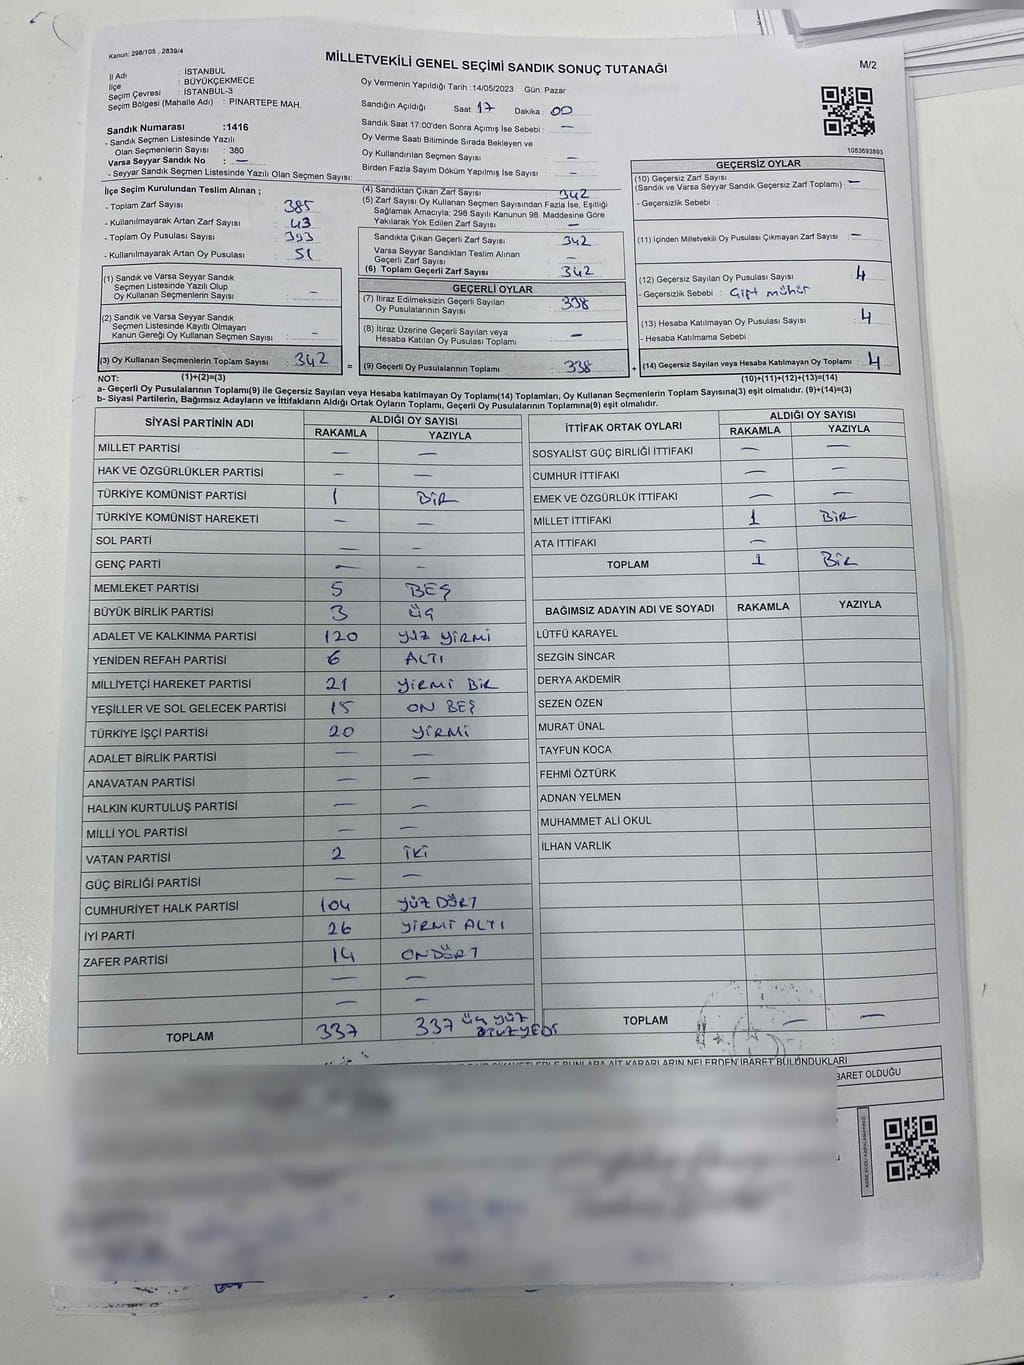 Kanun: 298/105 , 2839/4
MİLLETVEKİLİ GENEL SEÇİMİ SANDIK SONUÇ TUTANAĞI
M/2
İl Adı : İSTANBUL
İlçe : BÜYÜKÇEKMECE
Seçim Çevresi : İSTANBUL-3
Seçim Bölgesi (Mahalle Adı) : PINARTEPE MAH.
Sandık Numarası :1416
- Sandık Seçmen Listesinde Yazılı
Olan Seçmenlerin Sayısı : 380
Varsa Seyyar Sandık No : —
- Seyyar Sandık Seçmen Listesinde Yazılı Olan Seçmen Sayısı:
Oy Vermenin Yapıldığı Tarih :14/05/2023 Gün: Pazar
Sandığın Açıldığı Saat: 17 Dakika: 00
Sandık Saat 17:00'den Sonra Açılmış İse Sebebi : —
Oy Verme Saati Bitiminde Sırada Bekleyen ve
Oy Kullandırılan Seçmen Sayısı —
Birden Fazla Sayım Döküm Yapılmış İse Sayısı : —
1083693893
İlçe Seçim Kurulundan Teslim Alınan ;
- Toplam Zarf Sayısı : 385
- Kullanılmayarak Artan Zarf Sayısı : 43
- Toplam Oy Pusulası Sayısı : 393
- Kullanılmayarak Artan Oy Pusulası : 51
(1) Sandık ve Varsa Seyyar Sandık
Seçmen Listesinde Yazılı Olup
Oy Kullanan Seçmenlerin Sayısı : —
(2) Sandık ve Varsa Seyyar Sandık
Seçmen Listesinde Kayıtlı Olmayan
Kanun Gereği Oy Kullanan Seçmen Sayısı : —
(3) Oy Kullanan Seçmenlerin Toplam Sayısı : 342
(1)+(2)=(3)
(4) Sandıktan Çıkan Zarf Sayısı : 342
(5) Zarf Sayısı Oy Kullanan Seçmen Sayısından Fazla İse, Eşitliği
Sağlamak Amacıyla; 298 Sayılı Kanunun 98. Maddesine Göre
Yakılarak Yok Edilen Zarf Sayısı : —
Sandıkta Çıkan Geçerli Zarf Sayısı : 342
Varsa Seyyar Sandıktan Teslim Alınan
Geçerli Zarf Sayısı : —
(6) Toplam Geçerli Zarf Sayısı : 342
GEÇERLİ OYLAR
(7) İtiraz Edilmeksizin Geçerli Sayılan
Oy Pusulalarının Sayısı : 338
(8) İtiraz Üzerine Geçerli Sayılan veya
Hesaba Katılan Oy Pusulası Toplamı : —
= (9) Geçerli Oy Pusulalarının Toplamı : 338
GEÇERSİZ OYLAR
(10) Geçersiz Zarf Sayısı
(Sandık ve Varsa Seyyar Sandık Geçersiz Zarf Toplamı) : —
- Geçersizlik Sebebi :
(11) İçinden Milletvekili Oy Pusulası Çıkmayan Zarf Sayısı : —
(12) Geçersiz Sayılan Oy Pusulası Sayısı : 4
- Geçersizlik Sebebi : Çift mühür
(13) Hesaba Katılmayan Oy Pusulası Sayısı : 4
- Hesaba Katılmama Sebebi :
+ (14) Geçersiz Sayılan veya Hesaba Katılmayan Oy Toplamı : 4
(10)+(11)+(12)+(13)=(14)
NOT:
a- Geçerli Oy Pusulalarının Toplamı(9) ile Geçersiz Sayılan veya Hesaba katılmayan Oy Toplamı(14) Toplamları, Oy Kullanan Seçmenlerin Toplam Sayısına(3) eşit olmalıdır. (9)+(14)=(3)
b- Siyasi Partilerin, Bağımsız Adayların ve İttifakların Aldığı Ortak Oyların Toplamı, Geçerli Oy Pusulalarının Toplamına(9) eşit olmalıdır.
SİYASİ PARTİNİN ADI ALDIĞI OY SAYISI
RAKAMLA YAZIYLA
MİLLET PARTİSİ — —
HAK VE ÖZGÜRLÜKLER PARTİSİ — —
TÜRKİYE KOMÜNİST PARTİSİ 1 BİR
TÜRKİYE KOMÜNİST HAREKETİ — —
SOL PARTİ — —
GENÇ PARTİ — —
MEMLEKET PARTİSİ 5 BEŞ
BÜYÜK BİRLİK PARTİSİ 3 ÜÇ
ADALET VE KALKINMA PARTİSİ 120 YÜZ YİRMİ
YENİDEN REFAH PARTİSİ 6 ALTI
MİLLİYETÇİ HAREKET PARTİSİ 21 YİRMİ BİR
YEŞİLLER VE SOL GELECEK PARTİSİ 15 ON BEŞ
TÜRKİYE İŞÇİ PARTİSİ 20 YİRMİ
ADALET BİRLİK PARTİSİ — —
ANAVATAN PARTİSİ — —
HALKIN KURTULUŞ PARTİSİ — —
MİLLİ YOL PARTİSİ — —
VATAN PARTİSİ 2 İKİ
GÜÇ BİRLİĞİ PARTİSİ — —
CUMHURİYET HALK PARTİSİ 104 YÜZ DÖRT
İYİ PARTİ 26 YİRMİ ALTI
ZAFER PARTİSİ 14 ONDÖRT
— —
— —
TOPLAM 337 337 üç yüz otuzyedi
İTTİFAK ORTAK OYLARI ALDIĞI OY SAYISI
RAKAMLA YAZIYLA
SOSYALİST GÜÇ BİRLİĞİ İTTİFAKI — —
CUMHUR İTTİFAKI — —
EMEK VE ÖZGÜRLÜK İTTİFAKI — —
MİLLET İTTİFAKI 1 BİR
ATA İTTİFAKI —
TOPLAM 1 BİR
BAĞIMSIZ ADAYIN ADI VE SOYADI RAKAMLA YAZIYLA
LÜTFÜ KARAYEL
SEZGİN SİNCAR
DERYA AKDEMİR
SEZEN ÖZEN
MURAT ÜNAL
TAYFUN KOCA
FEHMİ ÖZTÜRK
ADNAN YELMEN
MUHAMMET ALİ OKUL
İLHAN VARLIK
TOPLAM — —
BUNLARA AİT KARARLARIN NELERDEN İBARET BULUNDUKLARI
BARET OLDUĞU